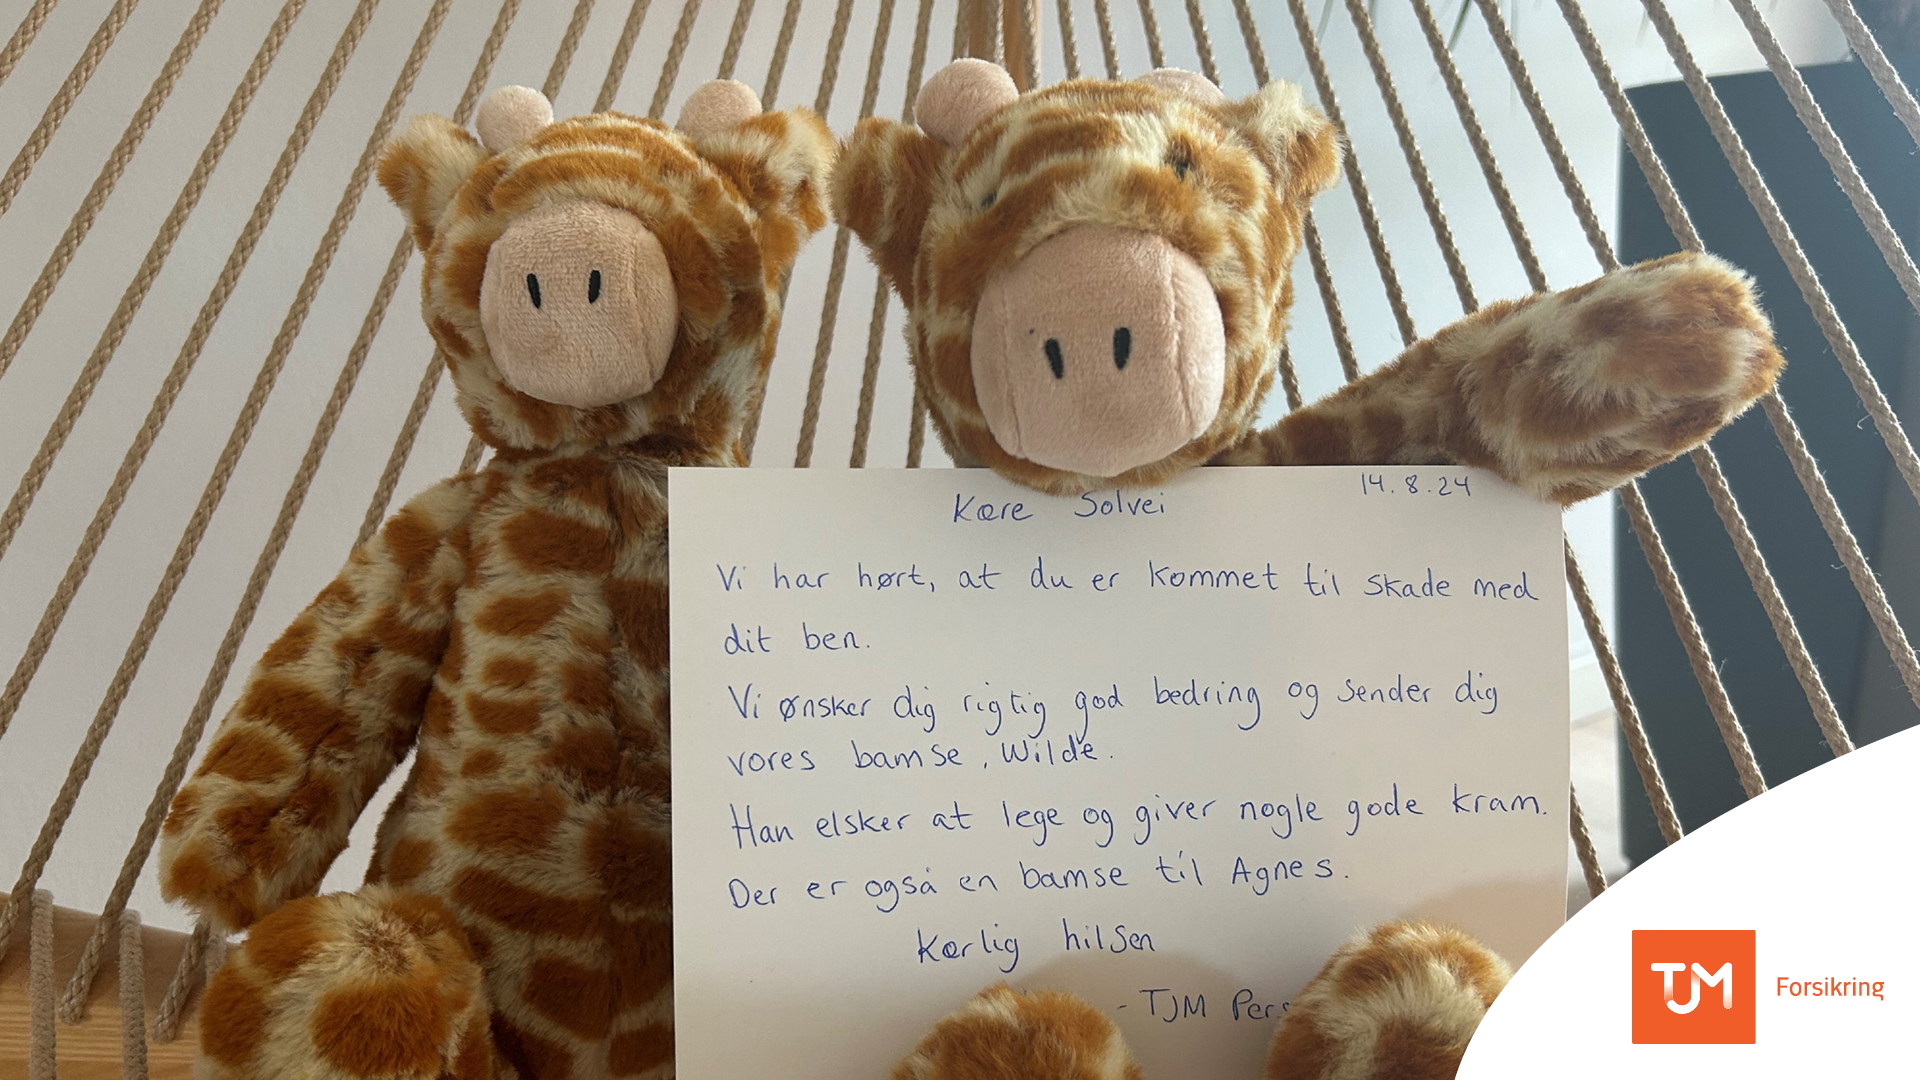 14.8.24
Kære Solvei
Vi har hørt, at du er kommet til skade med
dit ben.
Vi ønsker dig rigtig god bedring og sender dig
vores bamse, Wilde.
Han elsker at lege og giver nogle gode kram.
Der er også en bamse til Agnes.
Kærlig hilsen
- TJM Pers
TJM Forsikring